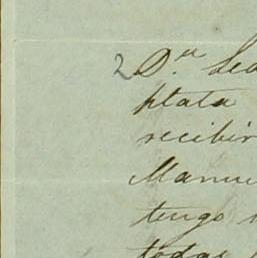 2 D.ⁿ
plata
recibir
Manu
tengo
todas